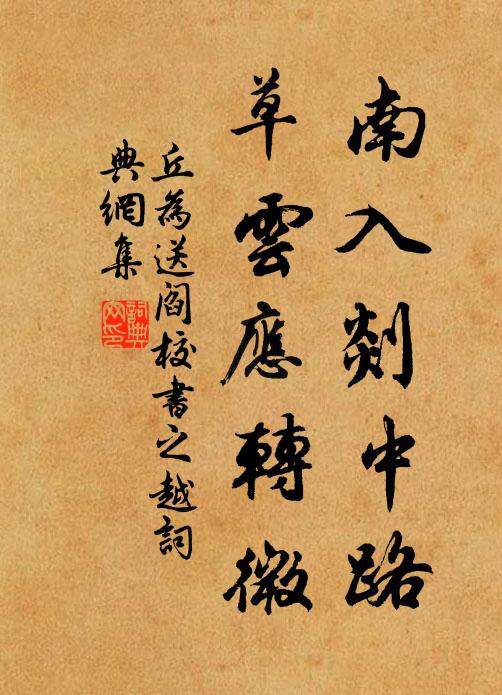 南入剡中路
草雲應轉微
丘為送閻校書之越詞
典網集
詞典
網印